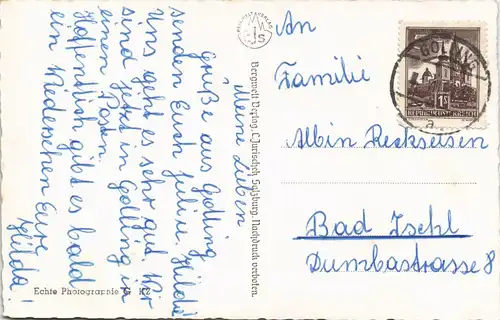 Meine Lieben
Grüße aus Golling
senden Euch Juli u. Hilde
Uns geht es sehr gut. Wir
sind jetzt in Golling in
einen Posten.
Hoffentlich gibt es bald
ein Wiedersehen Eure
Hilda!
Echte Photographie
Bergwelt Verlag, C. Jurischek Salzburg. Nachdruck verboten.
An
Familie
Albin Reckseisen
Bad Ischl
Dumbastrasse 8
GOLLING
a
1S
REPUBLIK ÖSTERREICH